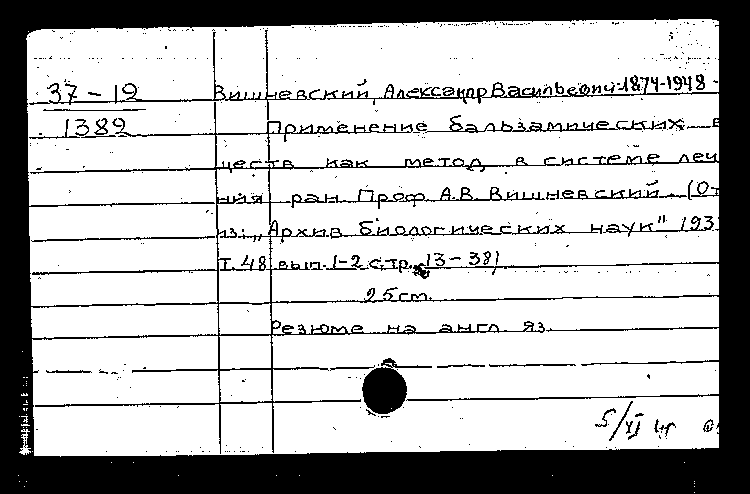 37-19 Вишневский, Александр Васильевич 1874-1948
1389 Применение бальзамических в
ществ как метод в системе леч
ния ран. Проф. А.В. Вишневский. (От
из: „Архив биологических наук" 193
Т. 48 вып. 1-2 стр. 13-38)
25 см.
Резюме на англ. яз.
5/XI